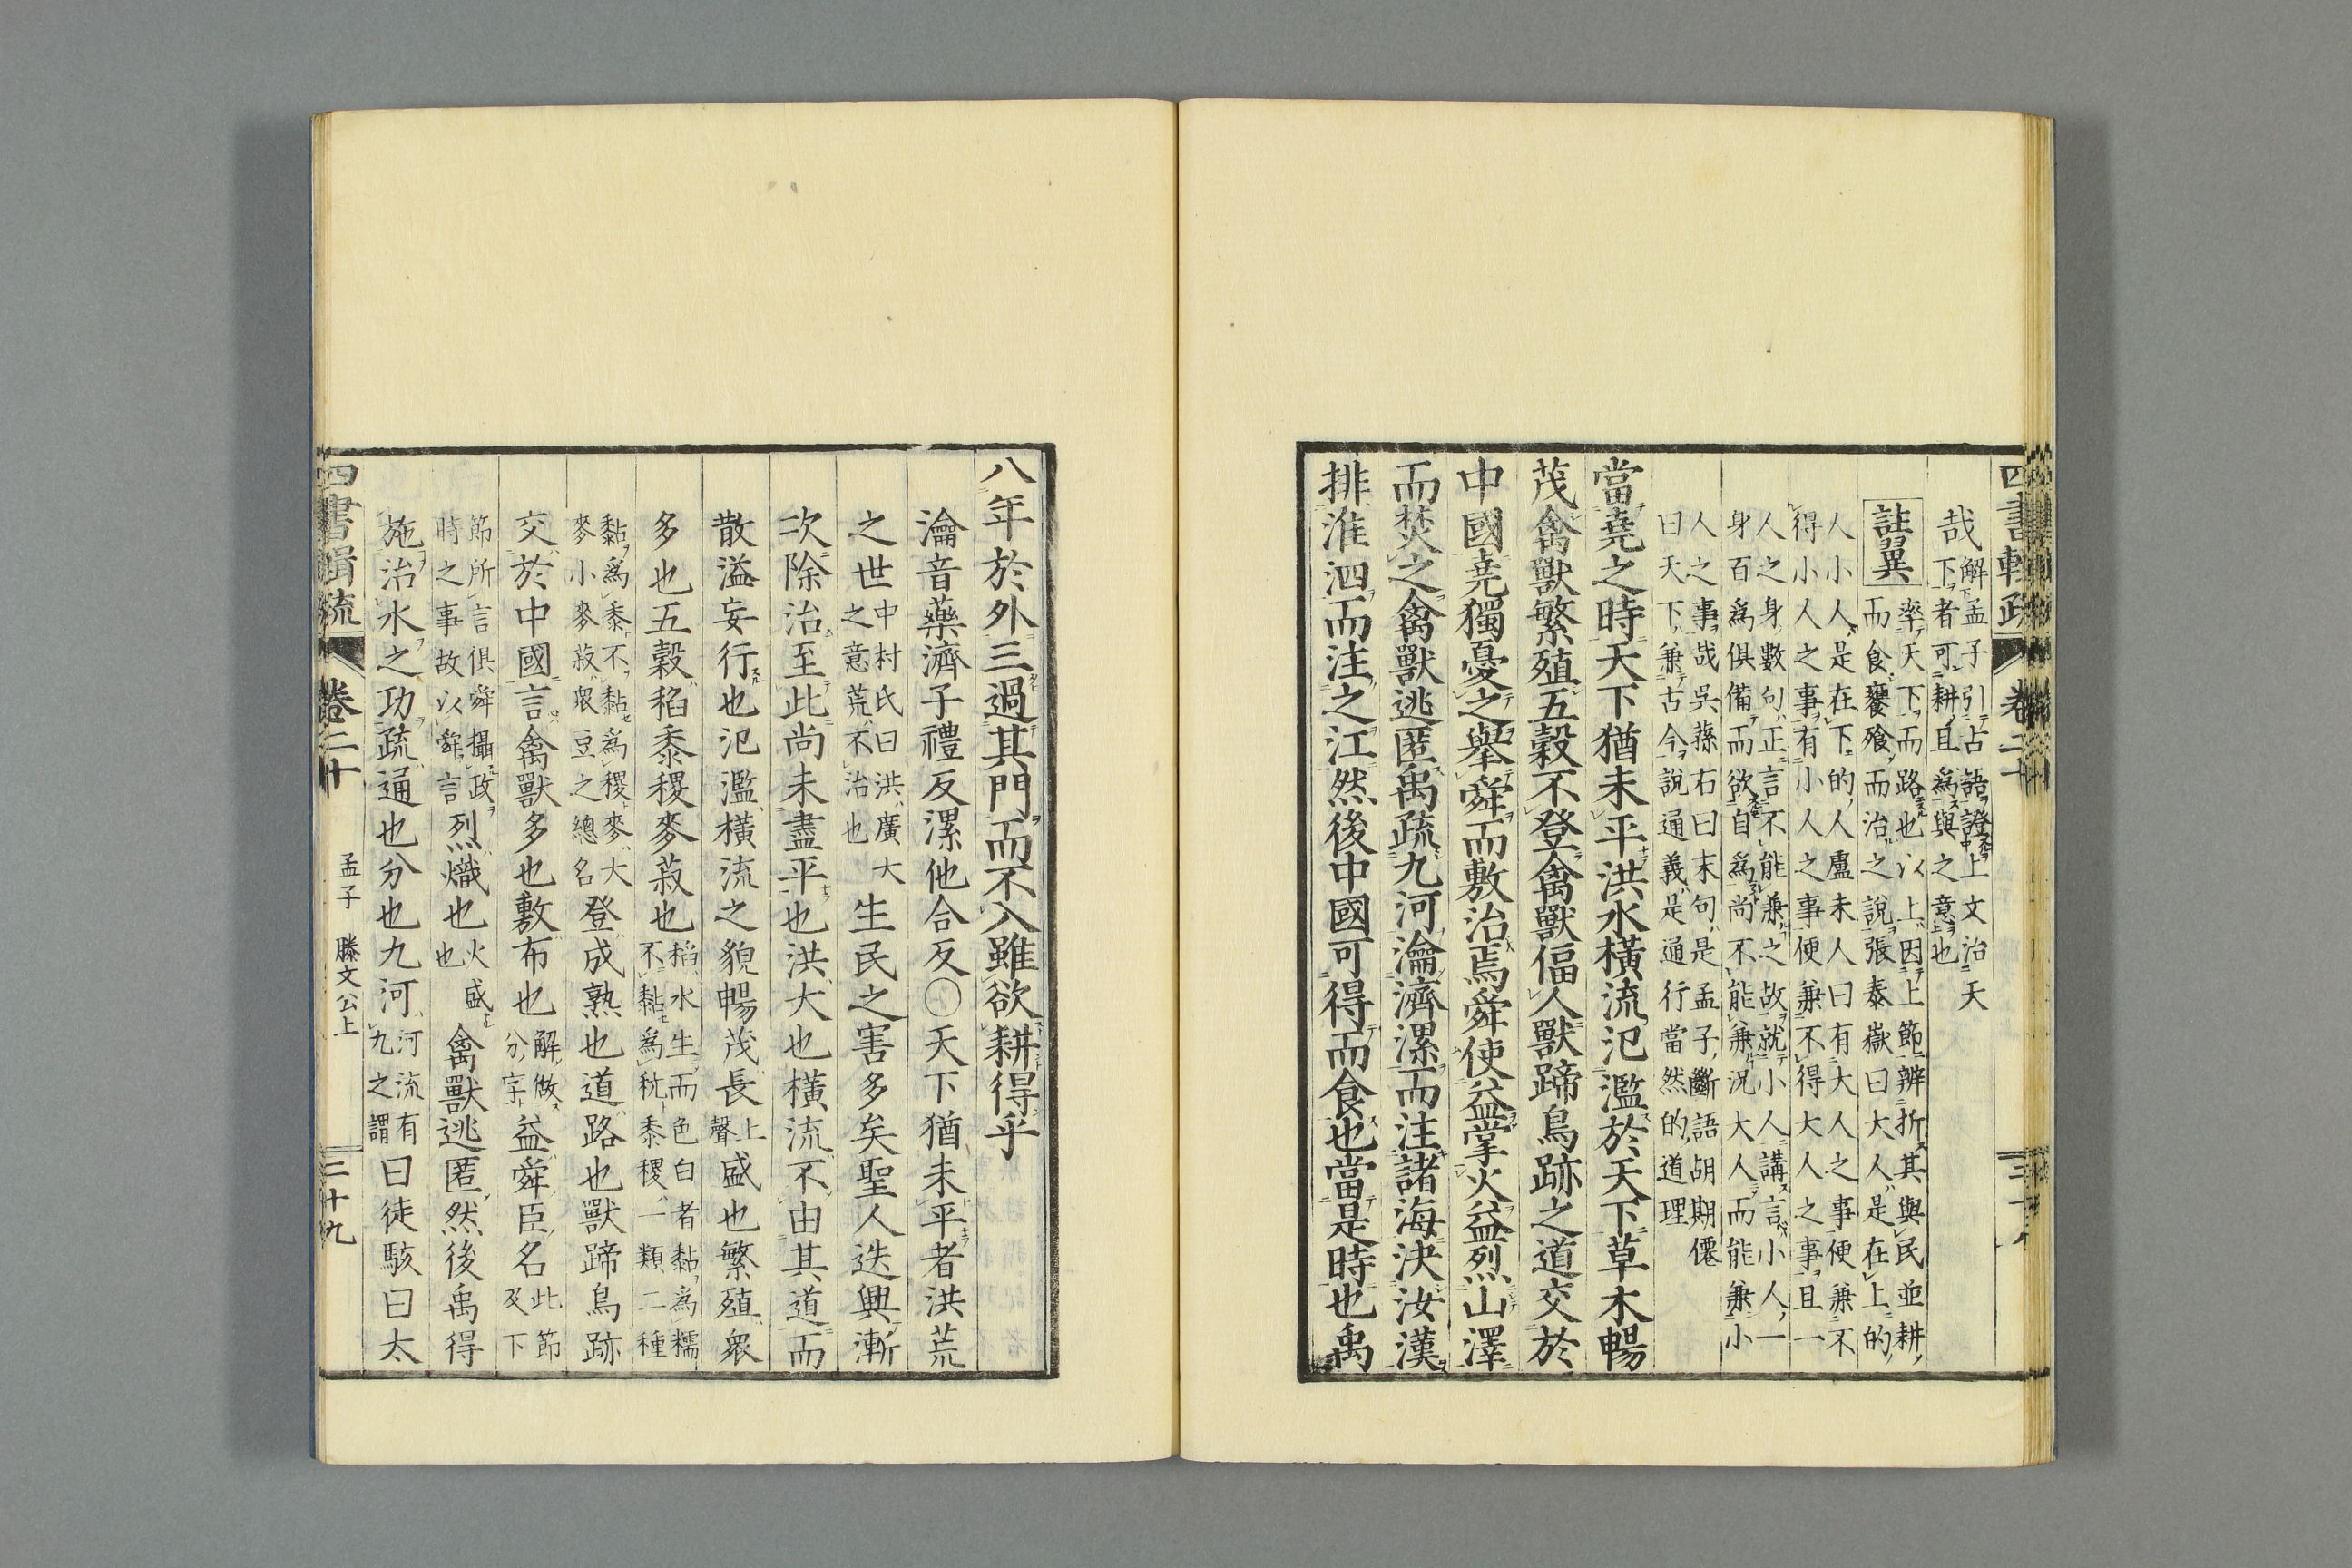 哉解孟子引占語證上文治天
下者可耕且爲與之意也
註翼率天下而路也以上因上節辨折其與民並耕
而食饔飧而治之說張泰嶽曰大人是在上的
人小人是在下的人盧未人曰有大人之事便兼不
得小人之事有小人之事便兼不得大人之事且一
人之身數句正言不能兼之故就小人講言小人一
身百爲俱備而欲自爲尚不能兼況大人而能兼小
人之事哉吳蓀右曰末句是孟子斷語胡期僊
曰天下兼古今說通義是通行當然的道理
當堯之時天下猶未平洪水橫流氾濫於天下草木暢
茂禽獸繁殖五穀不登禽獸偪人獸蹄鳥跡之道交於
中國堯獨憂之舉舜而敷治焉舜使益掌火益烈山澤
而焚之禽獸逃匿禹疏九河瀹濟漯而注諸海決汝漢
排淮泗而注之江然後中國可得而食也當是時也禹
八年於外三過其門而不入雖欲耕得乎
瀹音藥濟子禮反漯他合反○天下猶未平者洪荒
之世中村氏曰洪廣大之意荒不治也生民之害多矣聖人迭興漸
次除治至此尚未盡平也洪大也橫流不由其道而
散溢妄行也氾濫橫流之貌暢茂長上聲盛也繁殖衆
多也五穀稻黍稷麥菽也稻水生而色白者黏爲糯不黏爲秔黍稷一類二種
黏爲黍不黏爲稷麥大麥小麥菽衆豆之總名登成熟也道路也獸蹄鳥跡
交於中國言禽獸多也敷布也解倣分字益舜臣名此節及下
節所言俱舜攝政時之事故以舜言烈熾也火盛也禽獸逃匿然後禹得
施治水之功疏通也分也九河河流有九之謂曰徒駭曰太
四書輯疏 卷二十 孟子 滕文公上 三十九